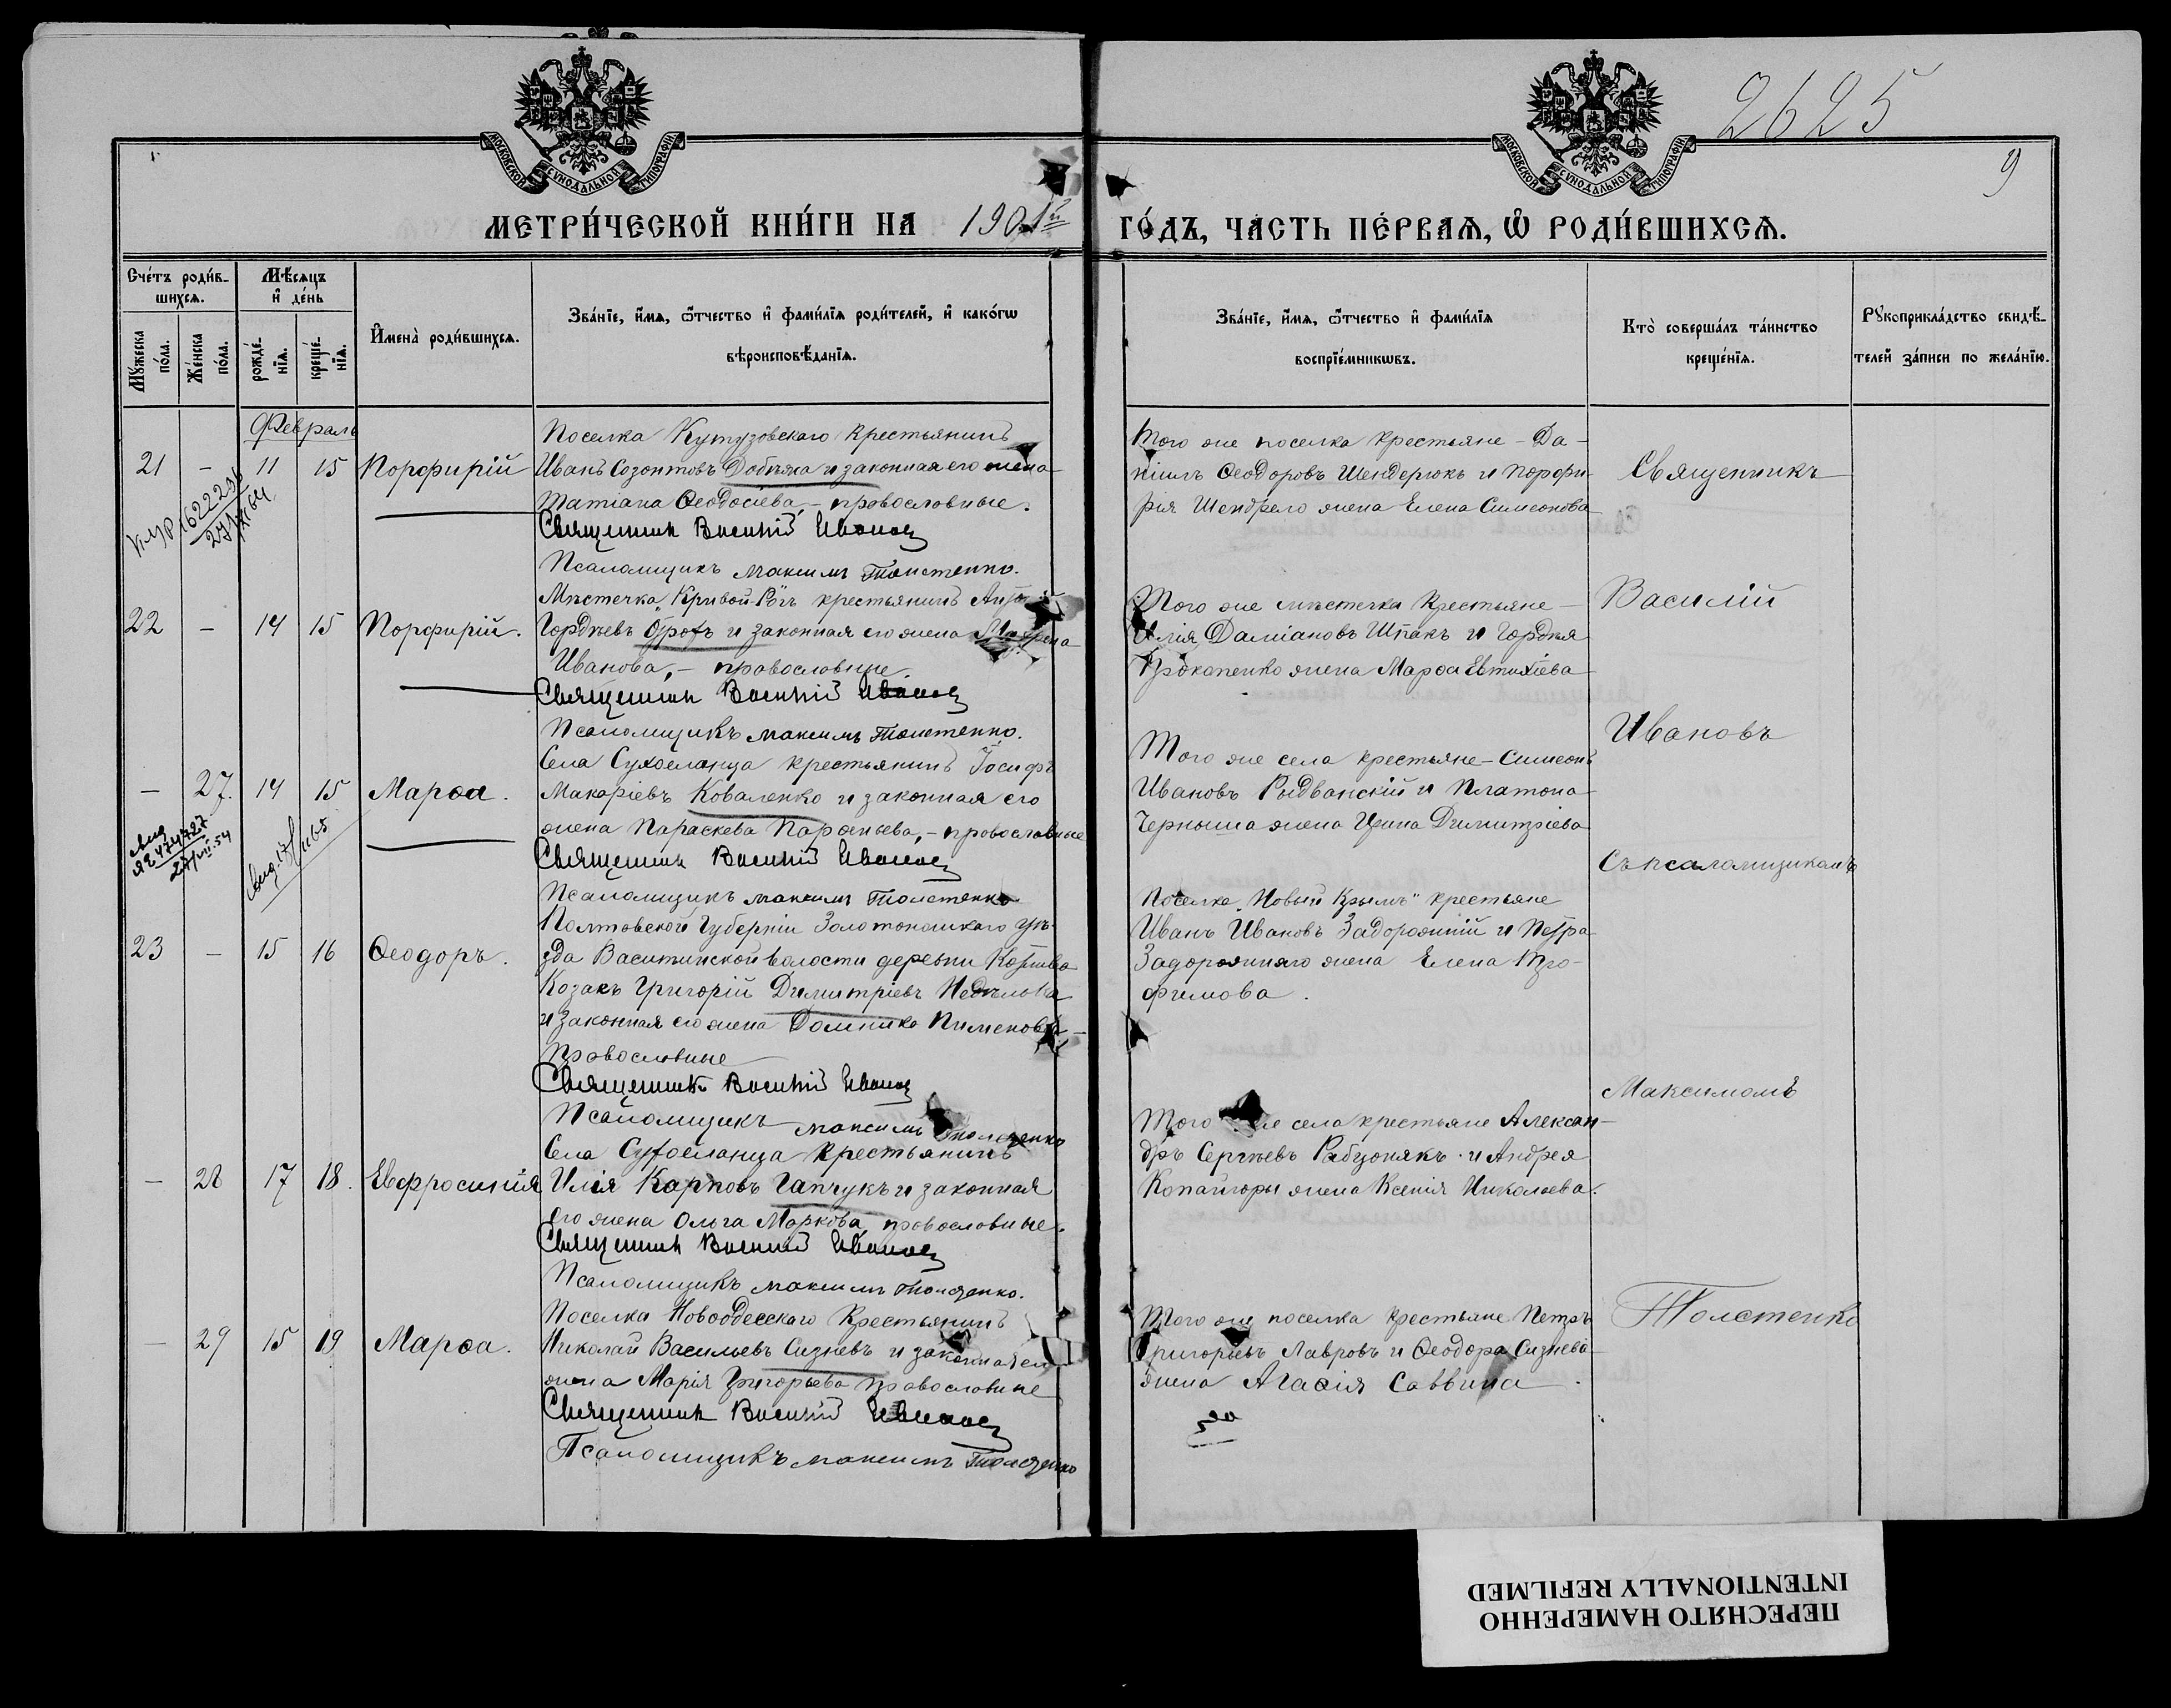 2625
9
МОСКОВСКОЙ СѴНОДАЛЬНОЙ ТИПОГРАФІИ
МОСКОВСКОЙ СѴНОДАЛЬНОЙ ТИПОГРАФІИ
МЕТРИ́ЧЕСКОЙ КНИ́ГИ НА 1901й
ГО́ДЪ, ЧА́СТЬ ПЕ́РВАѦ, Ѽ РОДИ́ВШИХСѦ.
Сче́тъ роди́в-
шихсѧ.
Мѣ́сѧцъ
и҆ де́нь
Мꙋ́жеска по́ла.
Же́нска по́ла.
рожде́-нїѧ.
креще́-нїѧ.
И҆мена̀ роди́вшихсѧ.
Зва́нїе, и҆́мѧ, ѻ҆́тчество и҆ фами́лїѧ роди́телей, и҆ како́гѡ
вѣроисповѣ́данїѧ.
Зва́нїе, и҆́мѧ, ѻ҆́тчество и҆ фами́лїѧ
воспрїе́мникѡвъ.
Кто̀ соверша́лъ та́инство
креще́нїѧ.
Рꙋкоприкла́дство свидѣ́-
телей за́писи по жела́нїю.
Февраль
21 - 11 15 Порфирій
Поселка Кутузовскаго крестьянинъ
Иванъ Созонтовъ Добѣжа и законная его жена
Татіана Ѳеодосіева, - православные.
Священник Василій Иванов
Псаломщикъ Максимъ Толстенко.
Того же поселка крестьяне - Да-
ніилъ Ѳеодоровъ Шендерюкъ и Порфи-
рія Шендрего жена Елена Симеонова
1622296
22 - 14 15 Порфирій.
Мѣстечка Кривой-Рогъ крестьянинъ
Гордѣевъ и законная его жена
Иванова, - православные
Священник Василій Иванов
Псаломщикъ Максимъ Толстенко.
Того же мѣстечка крестьяне -
Илія Даміановъ Шпакъ и Гордѣя
Прокопенко жена Марѳа Евтихіева
- 27. 14 15 Марѳа.
Села Сухоеланца крестьянинъ Іосифъ
Макаріевъ Коваленко и законная его
жена Параскева Парѳеньева, - православные
Священник Василій Иванов
Псаломщикъ Максимъ Толстенко
Того же села крестьяне - Симеонъ
Ивановъ Рыдванскій и Платона
Черныша жена Ирина Димитріева
23 - 15 16 Ѳеодоръ.
Полтовской Губерніи Золотоношскаго уѣ-
зда волости деревни
Козакъ Григорій Димитріевъ
и законная его жена Домника Пименова -
православные
Священникъ Василій Иванов
Псаломщикъ Максимъ Толстенко
Поселка „Новый Крымъ" крестьяне
Иванъ Ивановъ Задорожній и Петра
Задорожняго жена Елена Тро-
фимова.
- 28 17 18. Евфросинія
Села Сухоеланца крестьянинъ
Илія Карповъ Гапчукъ и законная
его жена Ольга Маркова православные.
Священник Василій Иванов
Псаломщикъ Максимъ Толстенко.
Того же села крестьяне Алексан-
дръ Сергѣевъ и Андрея
Копайгоры жена Ксенія Николаева.
- 29 15 19 Марѳа.
Поселка Новоодесскаго крестьянинъ
Николай Васильевъ Сизневъ и законная его
жена Марія Григорьева православные
Священник Василій Иванов
Псаломщикъ Максимъ Толстенко
Того же поселка крестьяне Петръ
Григорьевъ Лавровъ и Ѳеодора Сизнева
жена Агаѳія Саввина.
Священникъ
Василій
Ивановъ
Съ псаломщикомъ
Максимомъ
Толстенко
ПЕРЕСНЯТО НАМЕРЕННО
INTENTIONALLY REFILMED